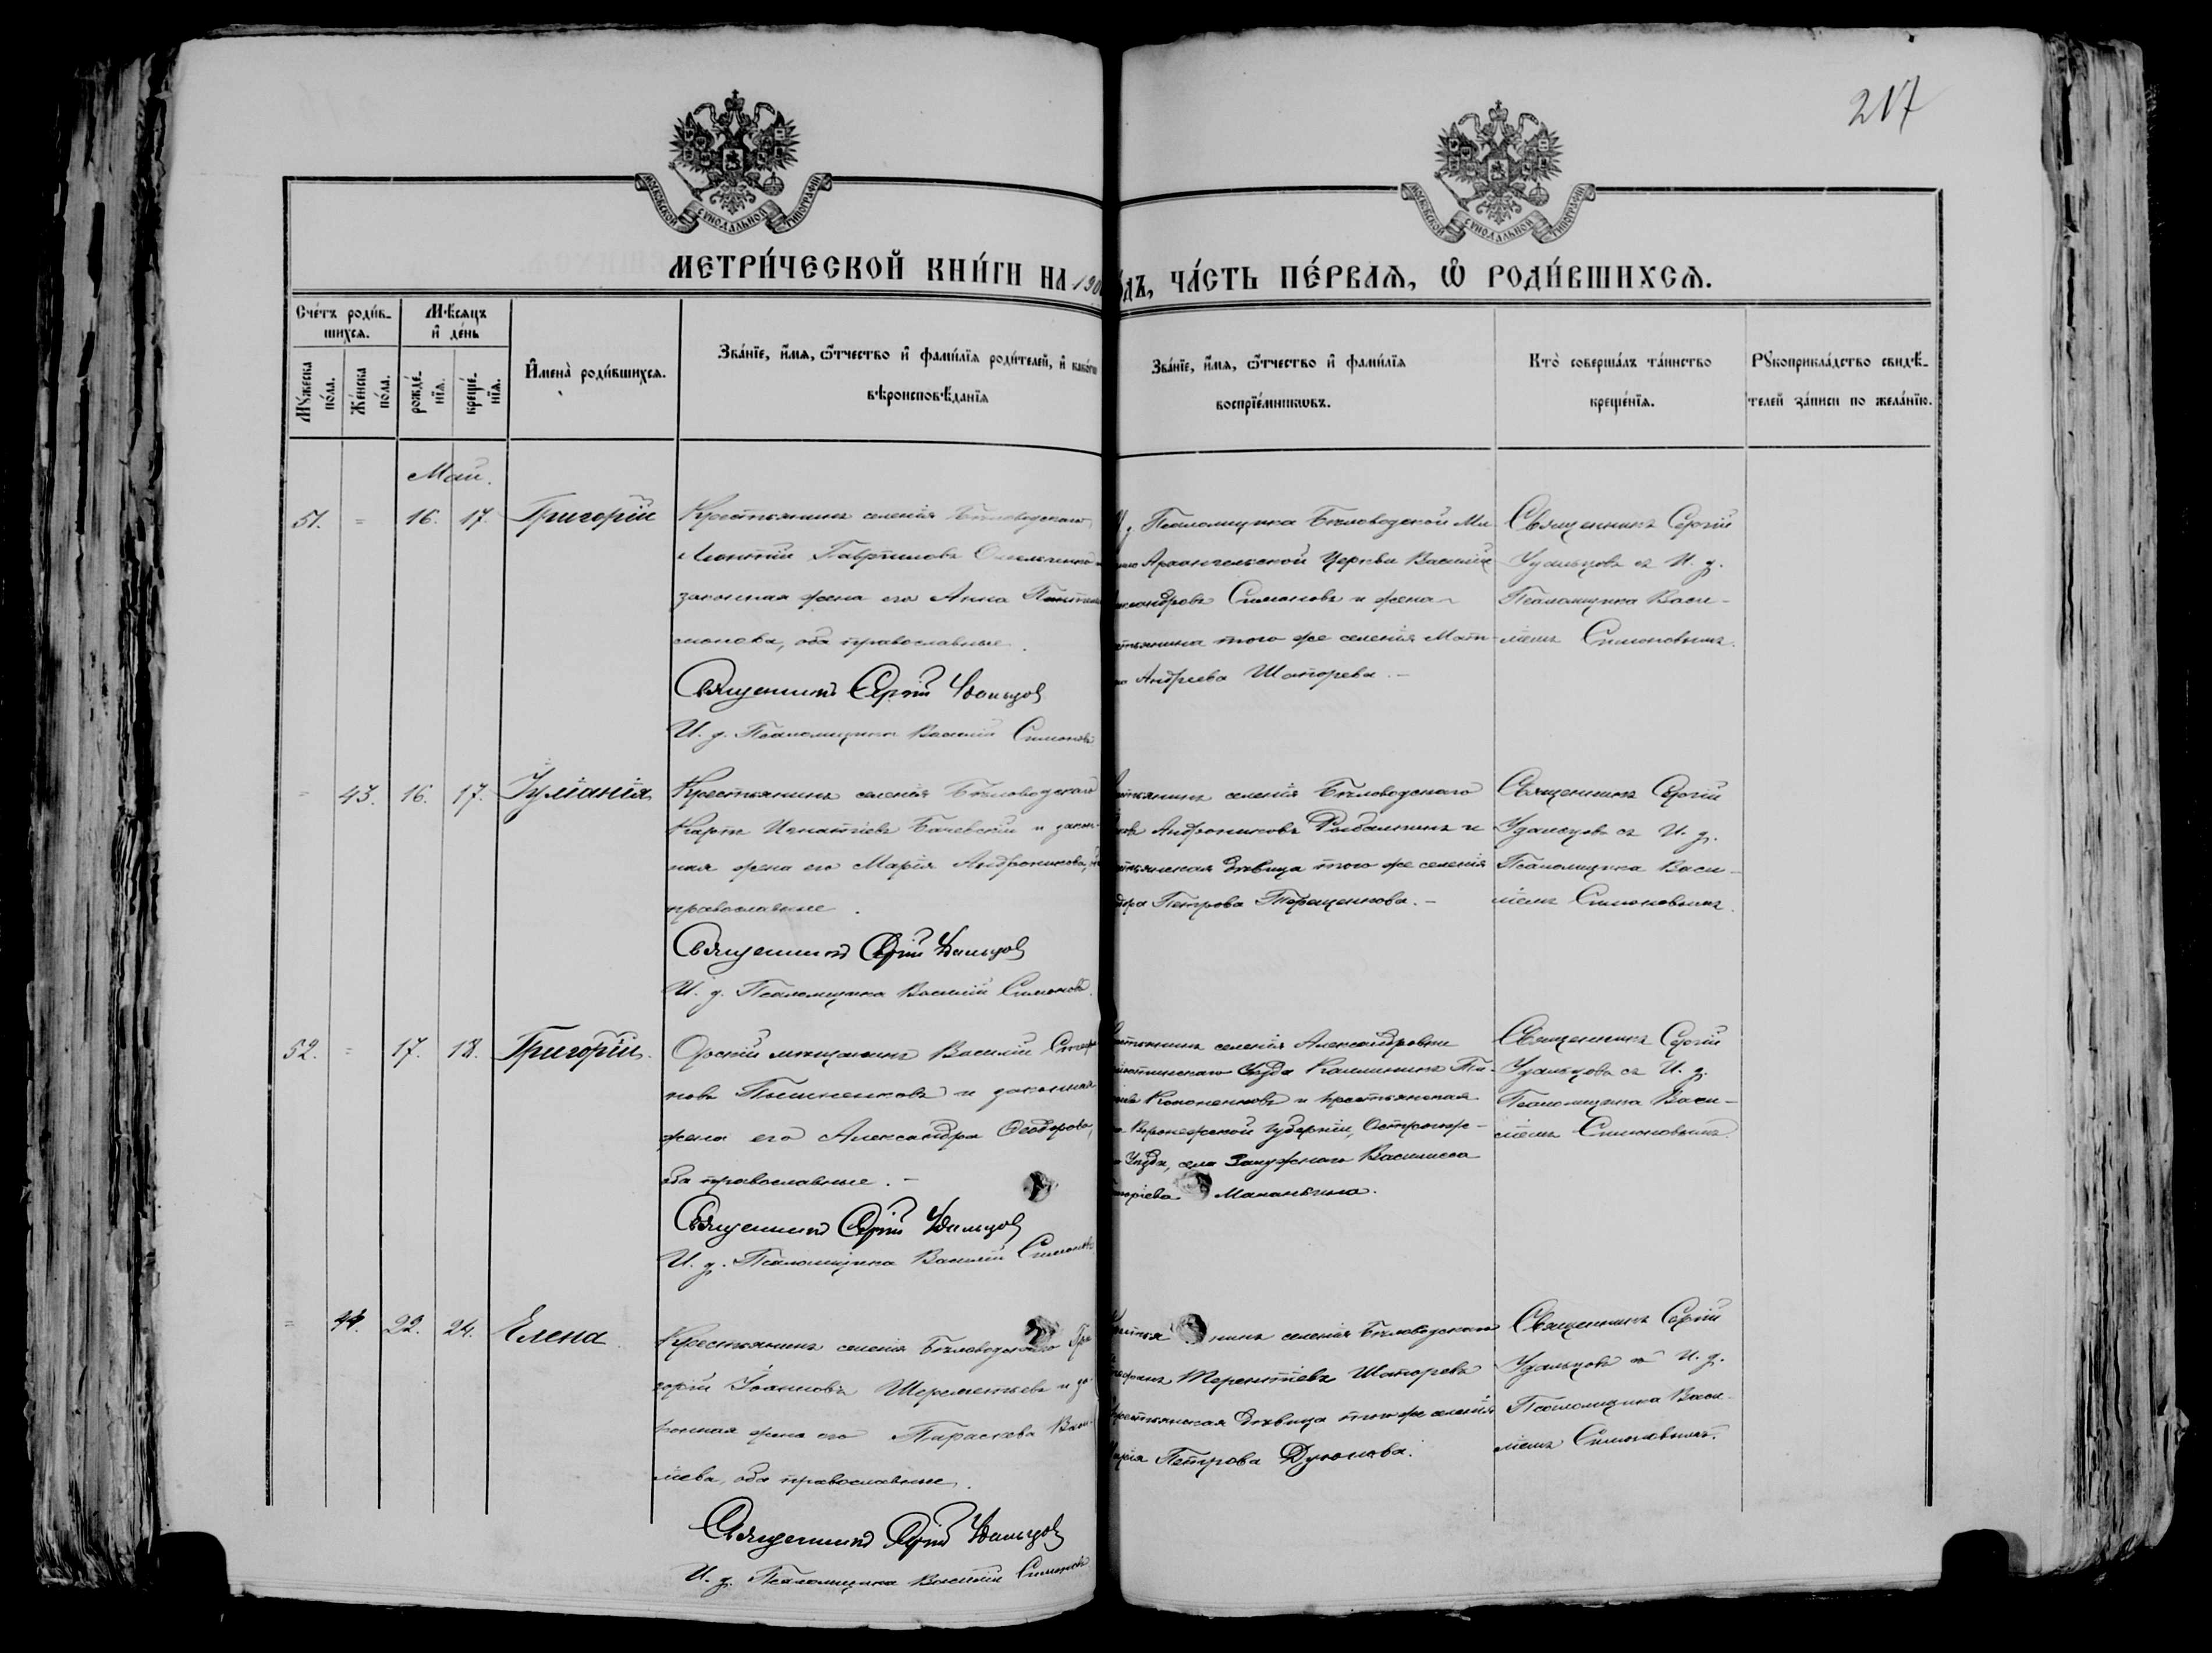 217
МОСКОВСКОЙ СѴНОДАЛЬНОЙ ТИПОГРАФІИ
МОСКОВСКОЙ СѴНОДАЛЬНОЙ ТИПОГРАФІИ
МЕТРИ́ЧЕСКОЙ КНИ́ГИ НА 190
ДЪ, ЧА́СТЬ ПЕ́РВАѦ, Ѡ РОДИ́ВШИХСѦ.
Сче́тъ роди́в-
шихсѧ.
Мѣсѧцъ
и де́нь
Мꙋжеска
по́ла.
Же́нска
по́ла.
рожде́-
нїѧ.
креще́-
нїѧ.
Имена̀ роди́вшихсѧ.
Зва́нїе, и́мѧ, ѻ́тчество и фами́лїѧ роди́телей, и како́гѡ
вѣроисповѣ́данїѧ
Зва́нїе, и́мѧ, ѻ́тчество и фами́лїѧ
воспрїе́мникѡвъ.
Кто̀ соверша́лъ та́инство
креще́нїѧ.
Рꙋкоприкла́дство свидѣ́-
телей за́писи по жела́нїю.
Май.
51. = 16. 17. Григорій
Крестьянинъ селенія Бѣловодскаго
Леонтій Гавриловъ Омельченко и
законная жена его Анна
оба православные.
Священникъ Сергій Удальцов
И. д. Псаломщика Василій Симоновъ
Псаломщика Бѣловодской Ми
Архангельской Церкви Василій
Симоновъ и жена
того же селенія
Андреева Шапорева. –
Священникъ Сергій
Удальцовъ съ И. д.
Псаломщика Васи-
ліемъ Симоновымъ.
= 43. 16. 17. Іуліанія
Крестьянинъ селенія Бѣловодскаго
Карпъ Игнатіевъ Бачевскій и закон-
ная жена его Марія Андроникова,
православные.
Священникъ Сергій Удальцов
И. д. Псаломщика Василій Симоновъ.
селенія Бѣловодскаго
Андрониковъ Рыбалкинъ и
дѣвица того же селенія
Петрова Терещенкова. –
Священникъ Сергій
Удальцовъ съ И. д.
Псаломщика Васи-
ліемъ Симоновымъ.
52. = 17. 18. Григорій.
Орскій мѣщанинъ Василій
новъ Пышненковъ и законная
жена его Александра Ѳеодорова,
оба православные. –
Священникъ Сергій Удальцов
И. д. Псаломщика Василій Симоновъ
селенія Александровки
Уѣзда Калининъ
Кононенковъ и крестьянская
Воронежской Губерніи, Острогож-
Уѣзда, села Василиса
Маканькина.
Священникъ Сергій
Удальцовъ съ И. д.
Псаломщика Васи-
ліемъ Симоновымъ.
= 44. 22. 24. Елена
Крестьянинъ селенія Бѣловодскаго Гри
горій Іоанновъ Шереметьевъ и за-
конная жена его Параскева Васи-
ліева, оба православные.
Священникъ Сергій Удальцов
И. д. Псаломщика Василій Симоновъ
нинъ селенія Бѣловодскаго
Терентіевъ Шапоревъ
дѣвица того же селенія
Петрова Дуюнова.
Священникъ Сергій
Удальцовъ съ И. д.
Псаломщика Васи-
ліемъ Симоновымъ.